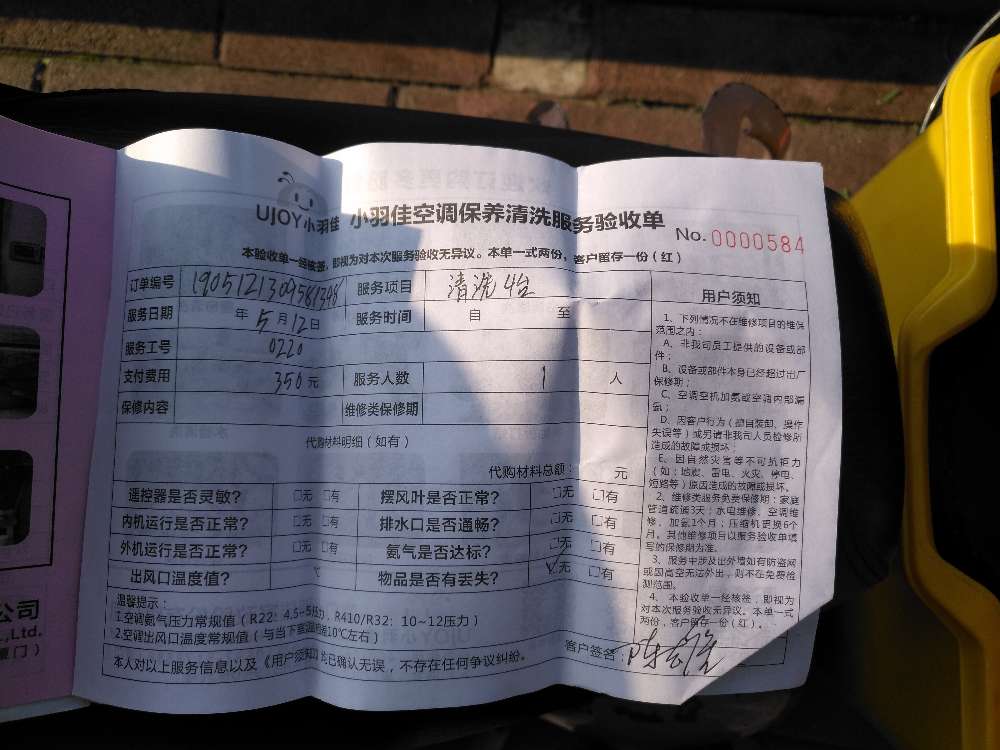 UJOY小羽佳 小羽佳空调保养清洗服务验收单
No. 0000584
本验收单一经核签，即视为对本次服务验收无异议。本单一式两份，客户留存一份（红）
订单编号 服务项目 清洗4台
服务日期 年5月12日 服务时间 自 至
服务工号 0220
支付费用 350元 服务人数 1 人
保修内容 维修类保修期
代购材料明细（如有）
代购材料总额： 元
遥控器是否灵敏？ □无 □有 摆风叶是否正常？ □无 □有
内机运行是否正常？ □无 □有 排水口是否通畅？ □无 □有
外机运行是否正常？ □无 □有 氨气是否达标？ □无 □有
出风口温度值？ ℃ 物品是否有丢失？ □无 □有
温馨提示：
1.空调氨气压力常规值（R22：4.5~5压力，R410/R32：10~12压力）
2.空调出风口温度常规值（与当下室温相差10℃左右）
本人对以上服务信息以及《用户须知》均已确认无误，不存在任何争议纠纷。
客户签名：
用户须知
1、下列情况不在维修项目的维保
范围之内：
A、非我司员工提供的设备或部
件；
B、设备或部件本身已经超过出厂
保修期；
C、空调空机加氨或空调内部漏
氨；
D、因客户行为（擅自装卸、操作
失误等）或另请非我司人员检修所
造成的故障或损坏；
E、因自然灾害等不可抗拒力
（如：地震、雷电、火灾、停电、
短路等）原因造成的故障或损坏。
2、维修类服务免费保修期：家庭
管道疏通3天；水电维修、空调维
修、加氨1个月；压缩机更换6个
月。其他维修项目以服务验收单填
写的保修期为准。
3、服务中涉及出外墙如有防盗网
或因高空无法外出，则不在免费检
测范围。
4、本验收单一经核签，即视为
对本次服务验收无异议。本单一式
两份，客户留存一份（红）。
公司
.,Ltd.
门）